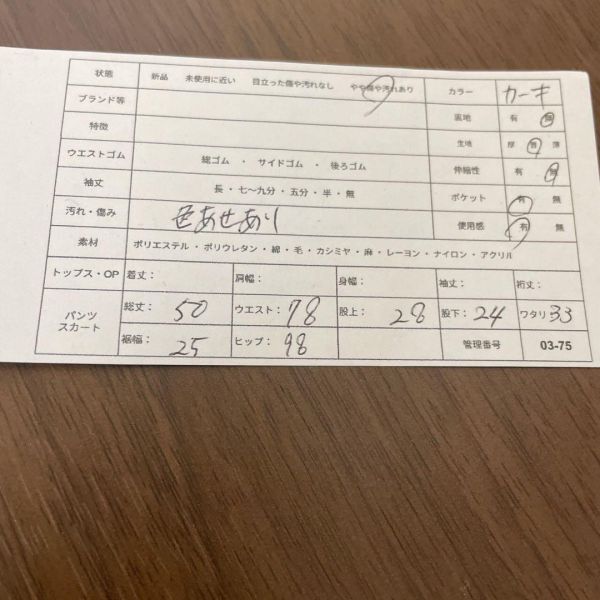 状態 新品 未使用に近い 目立った傷や汚れなし やや傷や汚れあり カラー カーキ
ブランド等 裏地 有 無
特徴 生地 厚 普 薄
ウエストゴム 総ゴム ・ サイドゴム ・ 後ろゴム 伸縮性 有 無
袖丈 長・七~九分・五分・半・無 ポケット 有 無
汚れ・傷み 色あせあり 使用感 有 無
素材 ポリエステル・ポリウレタン・綿・毛・カシミヤ・麻・レーヨン・ナイロン・アクリル
トップス・OP 着丈: 肩幅: 身幅: 袖丈: 裄丈:
パンツ スカート 総丈: 50 ウエスト: 78 股上: 28 股下: 24 ワタリ: 33
裾幅: 25 ヒップ: 98 管理番号 03-75